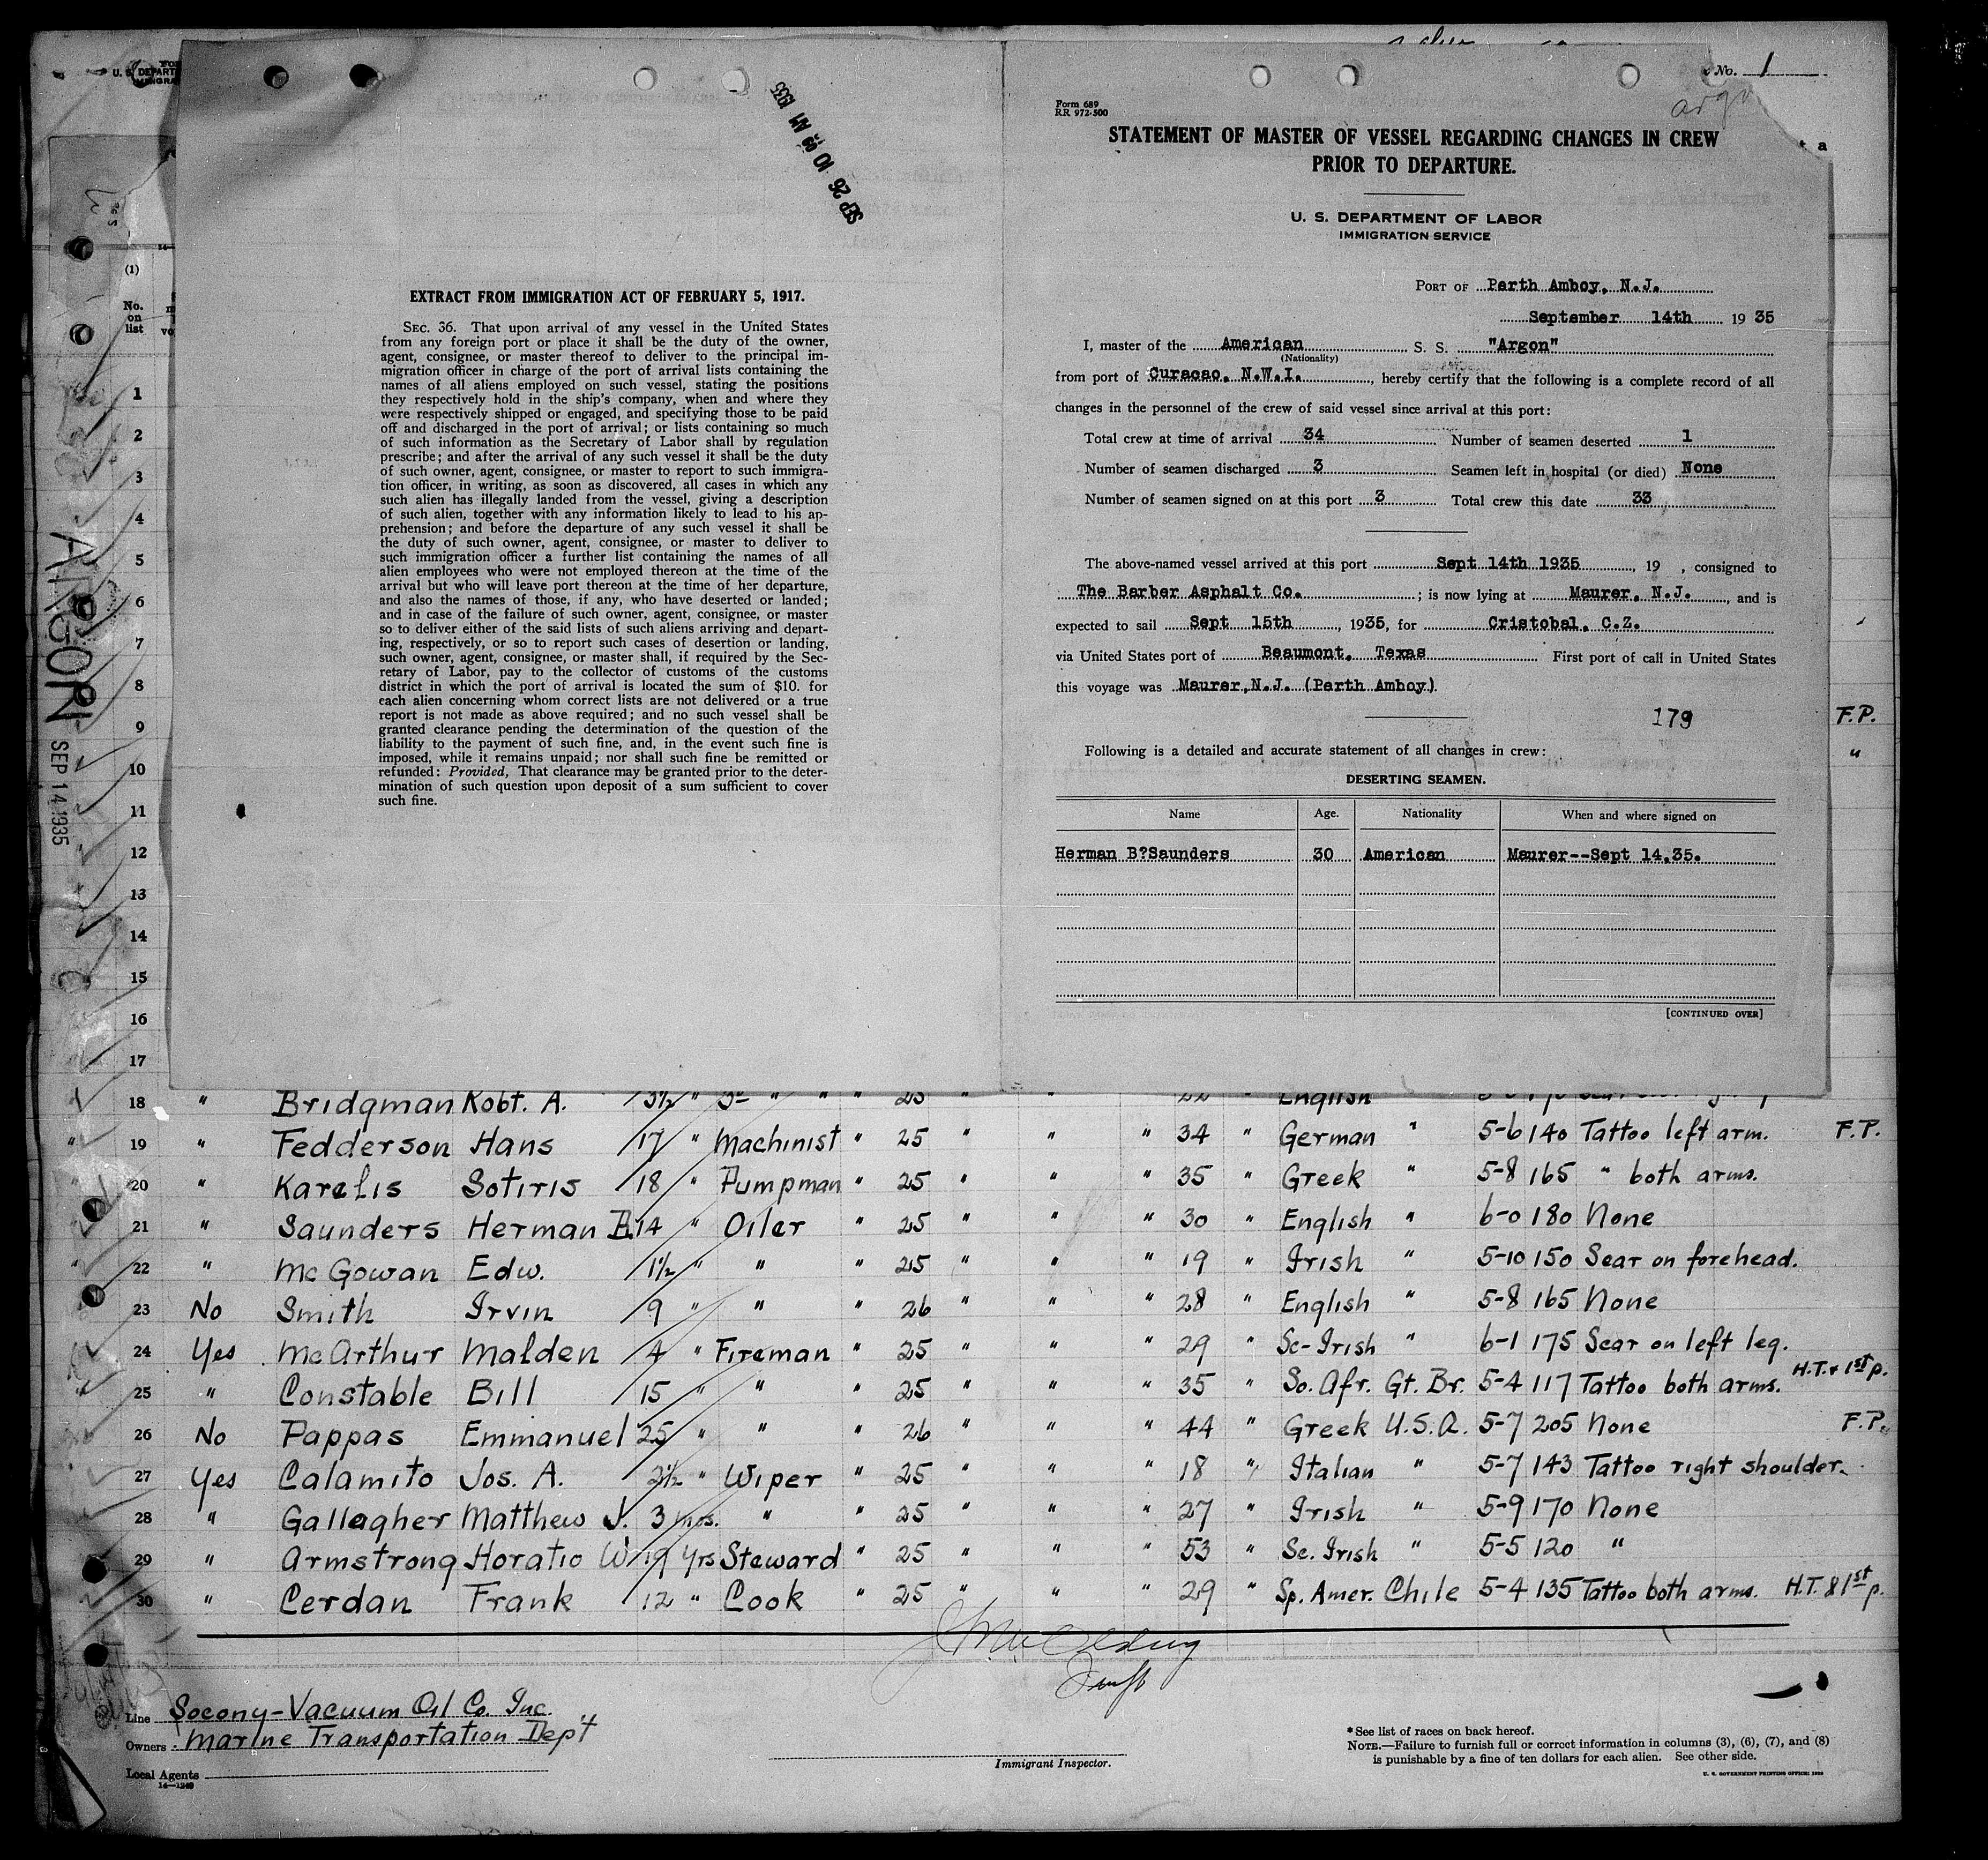 U. S. DEPART
No. 1
argo
SEP 26 10 09 AM 1935
Form 689
RR 972-500
STATEMENT OF MASTER OF VESSEL REGARDING CHANGES IN CREW
PRIOR TO DEPARTURE.
U. S. DEPARTMENT OF LABOR
IMMIGRATION SERVICE
PORT OF Perth Amboy, N.J.
September 14th 19 35
I, master of the American S. S. "Argon"
(Nationality)
from port of Curacao, N.W.I., hereby certify that the following is a complete record of all
changes in the personnel of the crew of said vessel since arrival at this port:
Total crew at time of arrival 34 Number of seamen deserted 1
Number of seamen discharged 3 Seamen left in hospital (or died) None
Number of seamen signed on at this port 3 Total crew this date 33
The above-named vessel arrived at this port Sept 14th 1935, 19 , consigned to
The Barber Asphalt Co. ; is now lying at Maurer, N.J., and is
expected to sail Sept 15th, 1935, for Cristobal, C.Z.
via United States port of Beaumont, Texas First port of call in United States
this voyage was Maurer,N.J. (Perth Amboy)
179
F.P.
"
Following is a detailed and accurate statement of all changes in crew:
DESERTING SEAMEN.
Name Age. Nationality When and where signed on
Herman B?Saunders 30 American Maurer--Sept 14.35.
[CONTINUED OVER]
EXTRACT FROM IMMIGRATION ACT OF FEBRUARY 5, 1917.
SEC. 36. That upon arrival of any vessel in the United States
from any foreign port or place it shall be the duty of the owner,
agent, consignee, or master thereof to deliver to the principal im-
migration officer in charge of the port of arrival lists containing the
names of all aliens employed on such vessel, stating the positions
they respectively hold in the ship's company, when and where they
were respectively shipped or engaged, and specifying those to be paid
off and discharged in the port of arrival; or lists containing so much
of such information as the Secretary of Labor shall by regulation
prescribe; and after the arrival of any such vessel it shall be the duty
of such owner, agent, consignee, or master to report to such immigra-
tion officer, in writing, as soon as discovered, all cases in which any
such alien has illegally landed from the vessel, giving a description
of such alien, together with any information likely to lead to his ap-
prehension; and before the departure of any such vessel it shall be
the duty of such owner, agent, consignee, or master to deliver to
such immigration officer a further list containing the names of all
alien employees who were not employed thereon at the time of the
arrival but who will leave port thereon at the time of her departure,
and also the names of those, if any, who have deserted or landed;
and in case of the failure of such owner, agent, consignee, or master
so to deliver either of the said lists of such aliens arriving and depart-
ing, respectively, or so to report such cases of desertion or landing,
such owner, agent, consignee, or master shall, if required by the Sec-
retary of Labor, pay to the collector of customs of the customs
district in which the port of arrival is located the sum of $10. for
each alien concerning whom correct lists are not delivered or a true
report is not made as above required; and no such vessel shall be
granted clearance pending the determination of the question of the
liability to the payment of such fine, and, in the event such fine is
imposed, while it remains unpaid; nor shall such fine be remitted or
refunded: Provided, That clearance may be granted prior to the deter-
mination of such question upon deposit of a sum sufficient to cover
such fine.
ARGON SEP 14 1935
(1)
No.
on
list
1
2
3
4
5
6
7
8
9
10
11
12
13
14
15
16
17
18 " Bridgman Robt. A. 3½ " 3rd " " " 25 " " 22 English
19 " Fedderson Hans 17 " Machinist " 25 " " " 34 " German " 5-6 140 Tattoo left arm. F.P.
20 " Karelis Sotiris 18 " Pumpman " 25 " " " 35 " Greek " 5-8 165 " both arms.
21 " Saunders Herman B. 14 " Oiler " 25 " " " 30 " English " 6-0 180 None
22 " McGowan Edw. 1½ " " " 25 " " " 19 " Irish " 5-10 150 Scar on forehead.
23 No Smith Irvin 9 " " " 26 " " " 28 " English " 5-8 165 None
24 Yes McArthur Malden 4 " Fireman " 25 " " " 29 " Sc-Irish " 6-1 175 Scar on left leg.
25 " Constable Bill 15 " " " 25 " " " 35 " So. Afr. Gt. Br. 5-4 117 Tattoo both arms. H.T. & 1st p.
26 No Pappas Emmanuel 25 " " " 26 " " " 44 " Greek U.S.A. 5-7 205 None F.P.
27 Yes Calamito Jos. A. 2½ " Wiper " 25 " " " 18 " Italian " 5-7 143 Tattoo right shoulder.
28 " Gallagher Matthew J. 3 mos. " " 25 " " " 27 " Irish " 5-9 170 None
29 " Armstrong Horatio W. 19 Yrs Steward " 25 " " " 53 " Sc. Irish " 5-5 120 "
30 " Cerdan Frank 12 " Cook " 25 " " " 29 " Sp. Amer. Chile 5-4 135 Tattoo both arms. H.T. & 1st p.
Line Socony-Vacuum Oil Co. Inc.
Owners Marine Transportation Dep't
Local Agents
14-1240
Immigrant Inspector.
*See list of races on back hereof.
NOTE.—Failure to furnish full or correct information in columns (3), (6), (7), and (8)
is punishable by a fine of ten dollars for each alien. See other side.
U. S. GOVERNMENT PRINTING OFFICE: